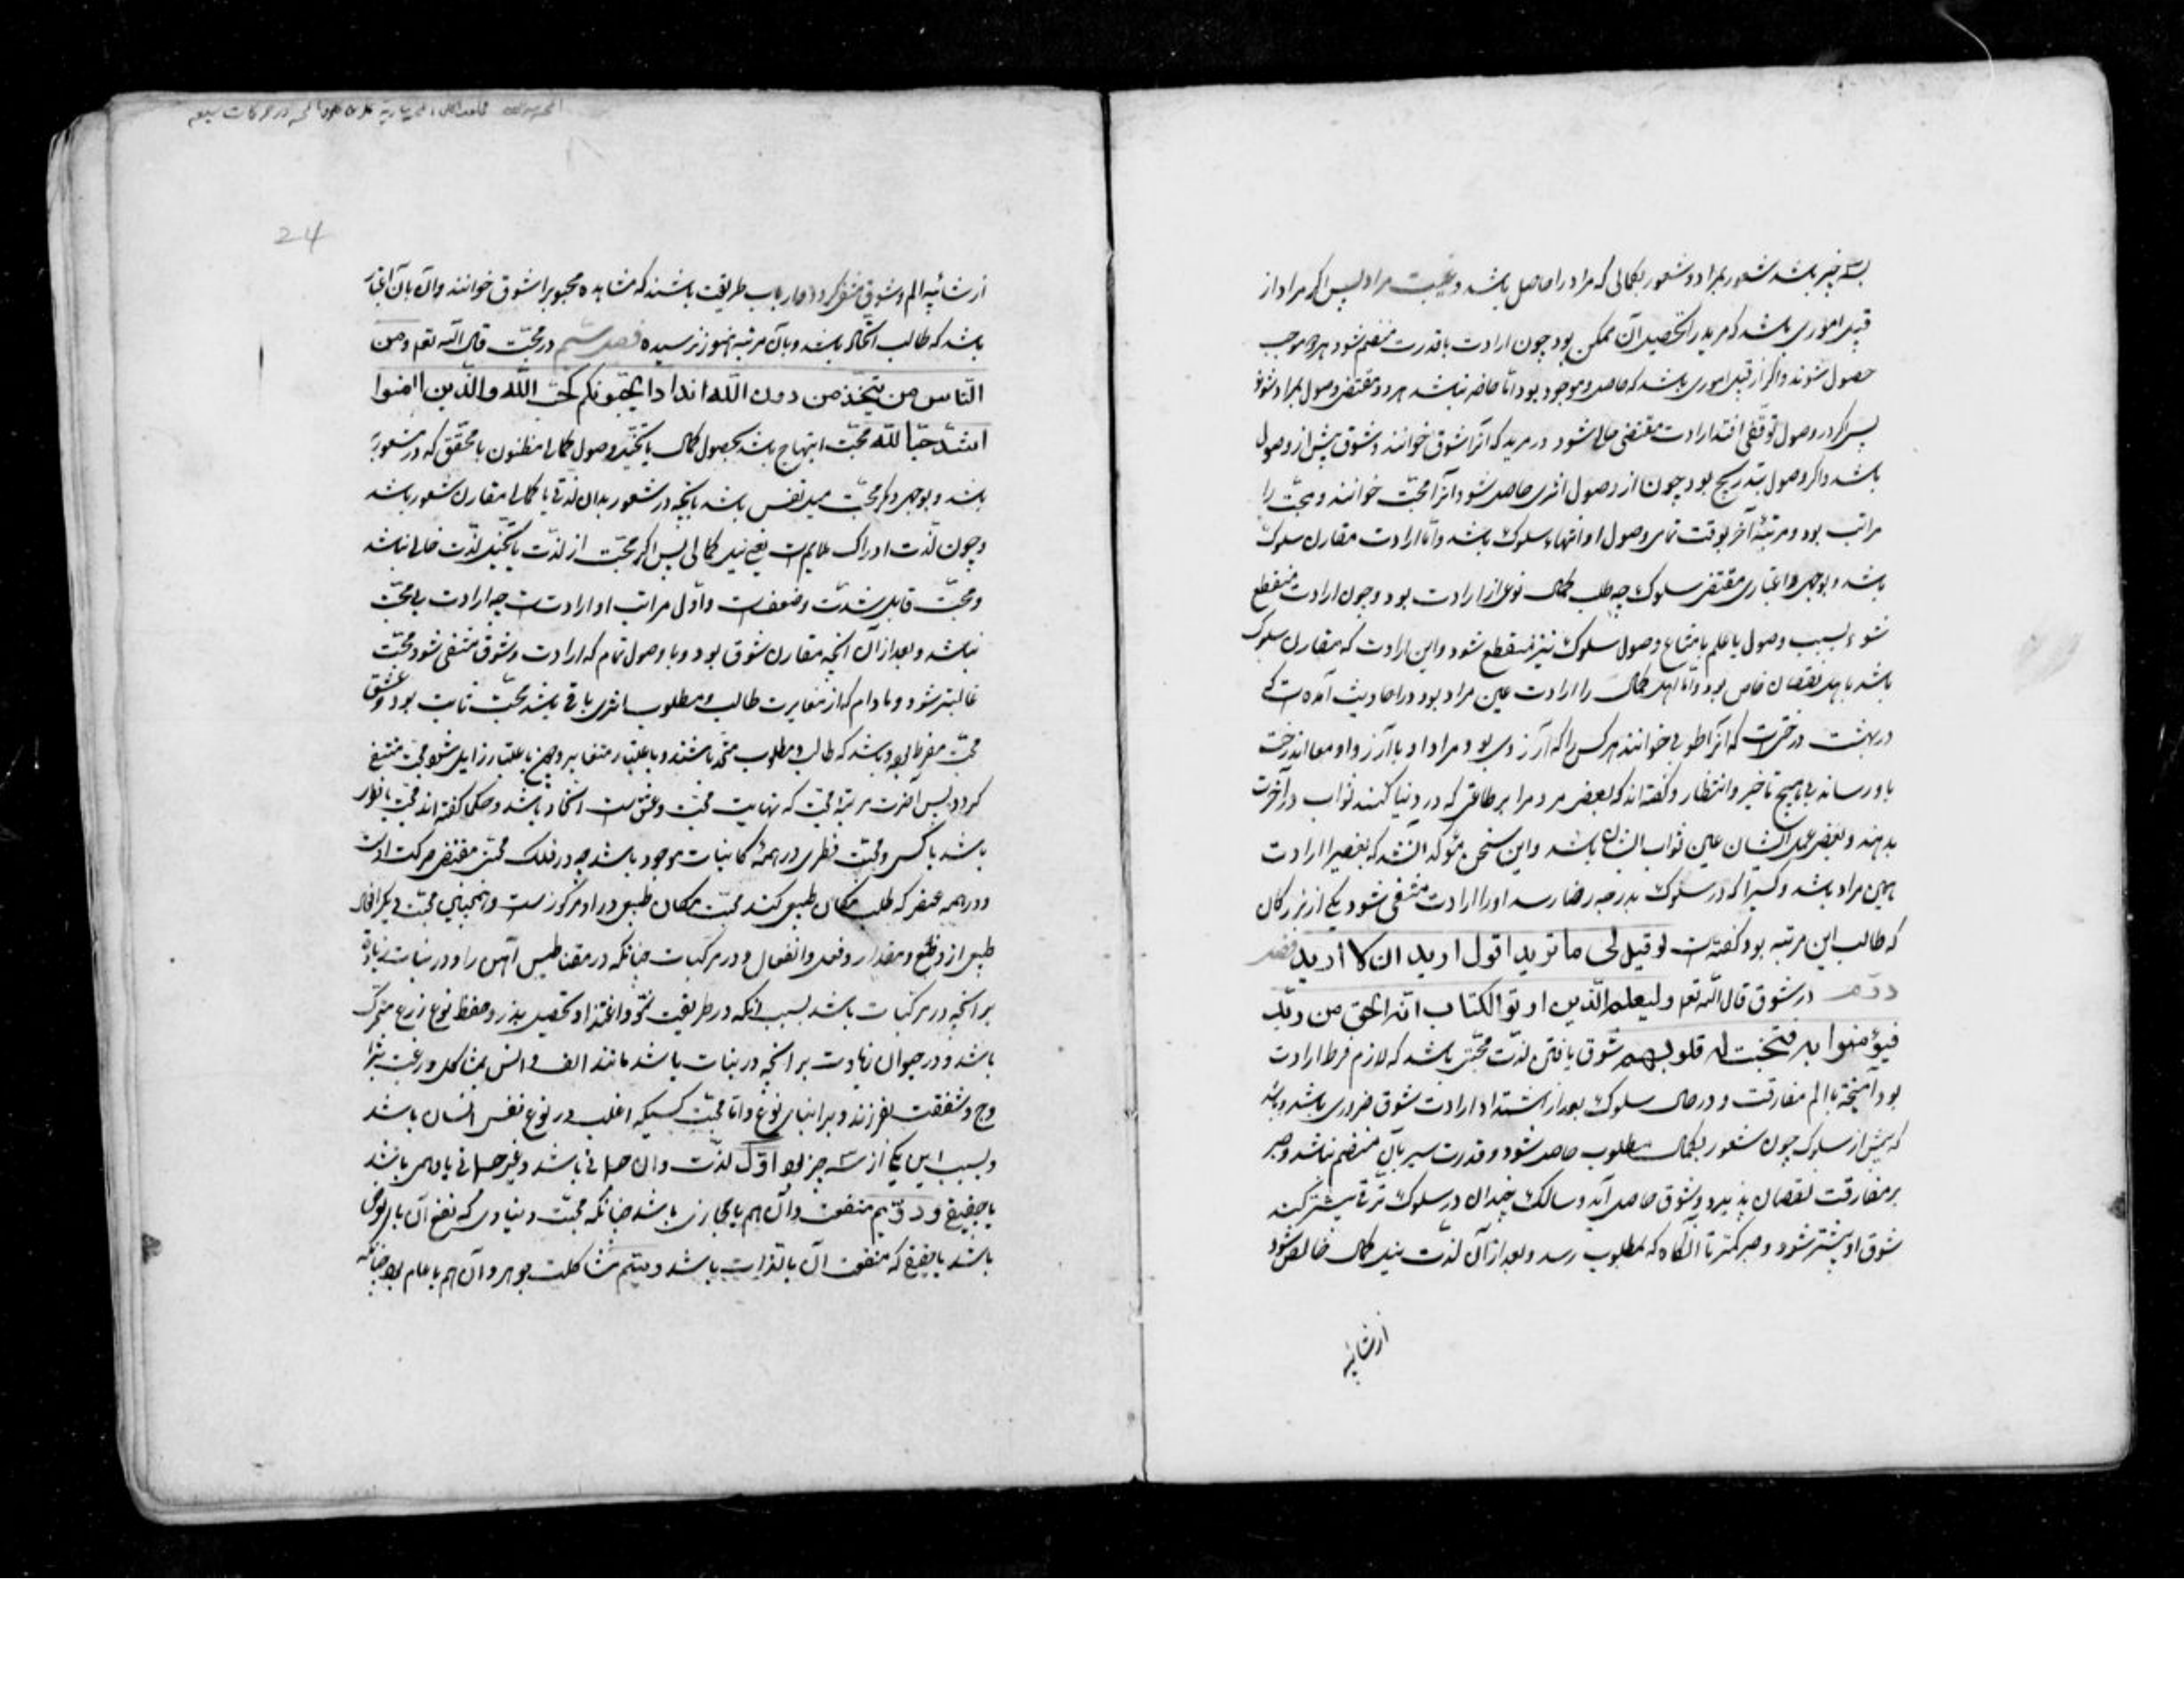 بسه چیز باشد شعور بمراد و شعور بکمالی که مراد را حاصل باشد و غیبت مراد پس اگر مراد از
قبیل اموری باشد که مرید را تحصیل آن ممکن بود چون ارادت با قدرت منضم شود هر دو موجب
حصول شوند و اگر از قبیل اموری باشد که حاصل و موجود بود اما حاضر نباشد هر دو مقتضی وصول بمراد شوند
پس اگر در وصول توقفی افتد ارادت مقتضی حالی شود در مرید که آنرا شوق خوانند و شوق پیش از وصول
باشد و اگر وصول بتدریج بود چون از وصول اثری حاصل شود آنرا محبت خوانند و محبت را
مراتب بود و مرتبۀ آخر بوقت تمامی وصول او انتهاء سلوک باشد و اما ارادت مقارن سلوک
باشد و بوجهی و اعتباری مقتضی سلوک چه طلب کمال نوعی از ارادت بود و چون ارادت منقطع
شود بسبب وصول یا علم بامتناع وصول سلوک نیز منقطع شود و این ارادت که مقارن سلوک
باشد باهل نقصان خاص بود و اما اهل کمال را ارادت عین مراد بود و در احادیث آمده است که
در بهشت درختیست که آنرا طوبی خوانند هر کس را که آرزوی بود مراد او با آرزو او معا اندرخت
باو رساند بی هیچ تاخیر و انتظار و گفته‌اند که بعضی مردم را بر طاعتی که در دنیا کنند ثواب در آخرت
بدهند و بعضی عمل ایشان عین ثواب ایشان باشد و این سخن مؤکد آنست که بعضی را ارادت
عین مراد باشد و کسی را که در سلوک بدرجه رضا رسد او را ارادت منتفی شود یکی از بزرگان
که طالب این مرتبه بود گفته‌ست لو قیل لی ما ترید اقول ارید ان لا ارید فصل
دوم در شوق قال الله تعم و لیعلم الذین اوتوا الکتاب انه الحق من ربک
فیؤمنوا به فتخبت له قلوبهم شوق یافتن لذت محبتی باشد که لازم فرط ارادت
بود آمیخته با الم مفارقت و در حال سلوک بعد از اشتداد ارادت شوق ضروری باشد و باشد
که پیش از سلوک چون شعور بکمال مطلوب حاصل شود و قدرت سیر بآن منضم نباشد و صبر
بر مفارقت نقصان پذیرد و شوق حاصل آید و سالک چندان در سلوک ترقی بیشتر کند
شوق او بیشتر شود و صبر کمتر تا آنگاه که بمطلوب رسد و بعد از آن لذت نیل کمال خالص شود
از شائبه
24
از شائبه الم و شوق منتفی گردد و ارباب طریقت باشند که مشاهده محبوب را شوق خوانند و آن بآن اعتبار
باشد که طالب اتحاد باشد و بآن مرتبه هنوز نرسیده فصل سیم در محبت قال الله تعم و من
الناس من یتخذ من دون الله اندادا یحبونهم کحب الله والذین امنوا
اشد حبا لله محبت ابتهاج باشد بحصول کمال یا تخیل وصول کمالی مظنون یا محقق که در مشعور به
باشد و بوجهی دیگر محبت میل نفس باشد بآنچه در شعور بدان لذتی یا کمالی مقارن شعور باشد
و چون لذت ادراک ملایم است یعنی نیل کمالی پس اگر محبت از لذت یا تخیل لذت خالی نباشد
و محبت قابل شدت و ضعفست و اول مراتب او ارادتست چه ارادت بی محبت
نباشد و بعد از آن آنچه مقارن شوق بود و با وصول تمام که ارادت و شوق منتفی شود محبت
غالبتر شود و مادام که از مغایرت طالب و مطلوب اثری باقی باشد محبت ثابت بود و عشق
محبت مفرط بود و باشد که طالب و مطلوب متحد باشند و باعتبار متغایر و چون اعتبار زایل شود محبت منتفی
گردد پس آخرت مرتبه محبت که نهایت محبت و عشق است اتحاد باشد و حکما گفته‌اند محبت یا فطری
باشد یا کسبی و محبت فطری در همۀ کاینات موجود باشد چه در فلک محبتی مقتضی حرکت اوست
و در همه عنصر که طلب مکان طبیعی کند محبت مکان طبیعی در او مرکوزست و همچنین محبت دیگر احوال
طبیعی از وضع و مقدار و فعل و انفعال و در مرکبات چنانکه در مقناطیس آهن را و در نبات زیاده
بر آنچه در مرکبات باشد بسبب آنکه در طریقت نمو و اغتذا و تحصیل بذر و حفظ نوع زرع متحرک
باشد و در حیوان زیادت بر آنچه در نبات باشد مانند الف و انس بمشاکل و رغبت بتزا
وج و شفقت بفرزند و بر ابنای نوع و اما محبت کسبی که اغلب در نوع نفس انسان باشد
و بسبب این یکی از سه چیز بود اول لذت و آن جسمانی باشد و غیر جسمانی یا وهمی باشد
یا حقیقی و دویم منفعت و آن هم یا مجازی باشد چنانکه محبت دنیاوی که نفع آن بالعرض
باشد یا حقیقی که منفعت آن بالذات باشد و سیم مشاکلت جوهر و آن هم یا عام بود چنانکه